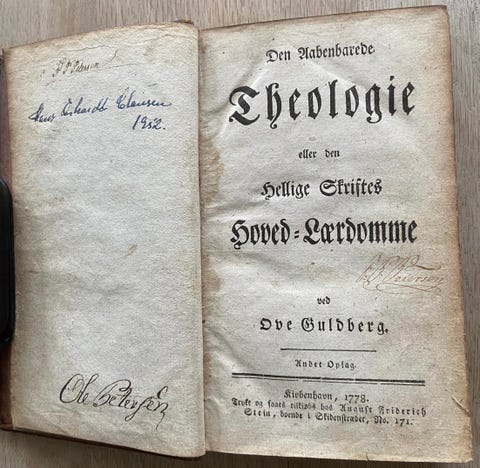 P. P. Petersen
Hans Erhardt Clausen
1952.
Ole Petersen
Den Aabenbarede
Theologie
eller den
Hellige Skriftes
Hoved=Lærdomme
P. P. Petersen
ved
Ove Guldberg.
Andet Oplag.
Kiøbenhavn, 1778.
Trykt og faaes tilkiøbs hos August Friderich
Stein, boende i Skidenstræde, No. 171.